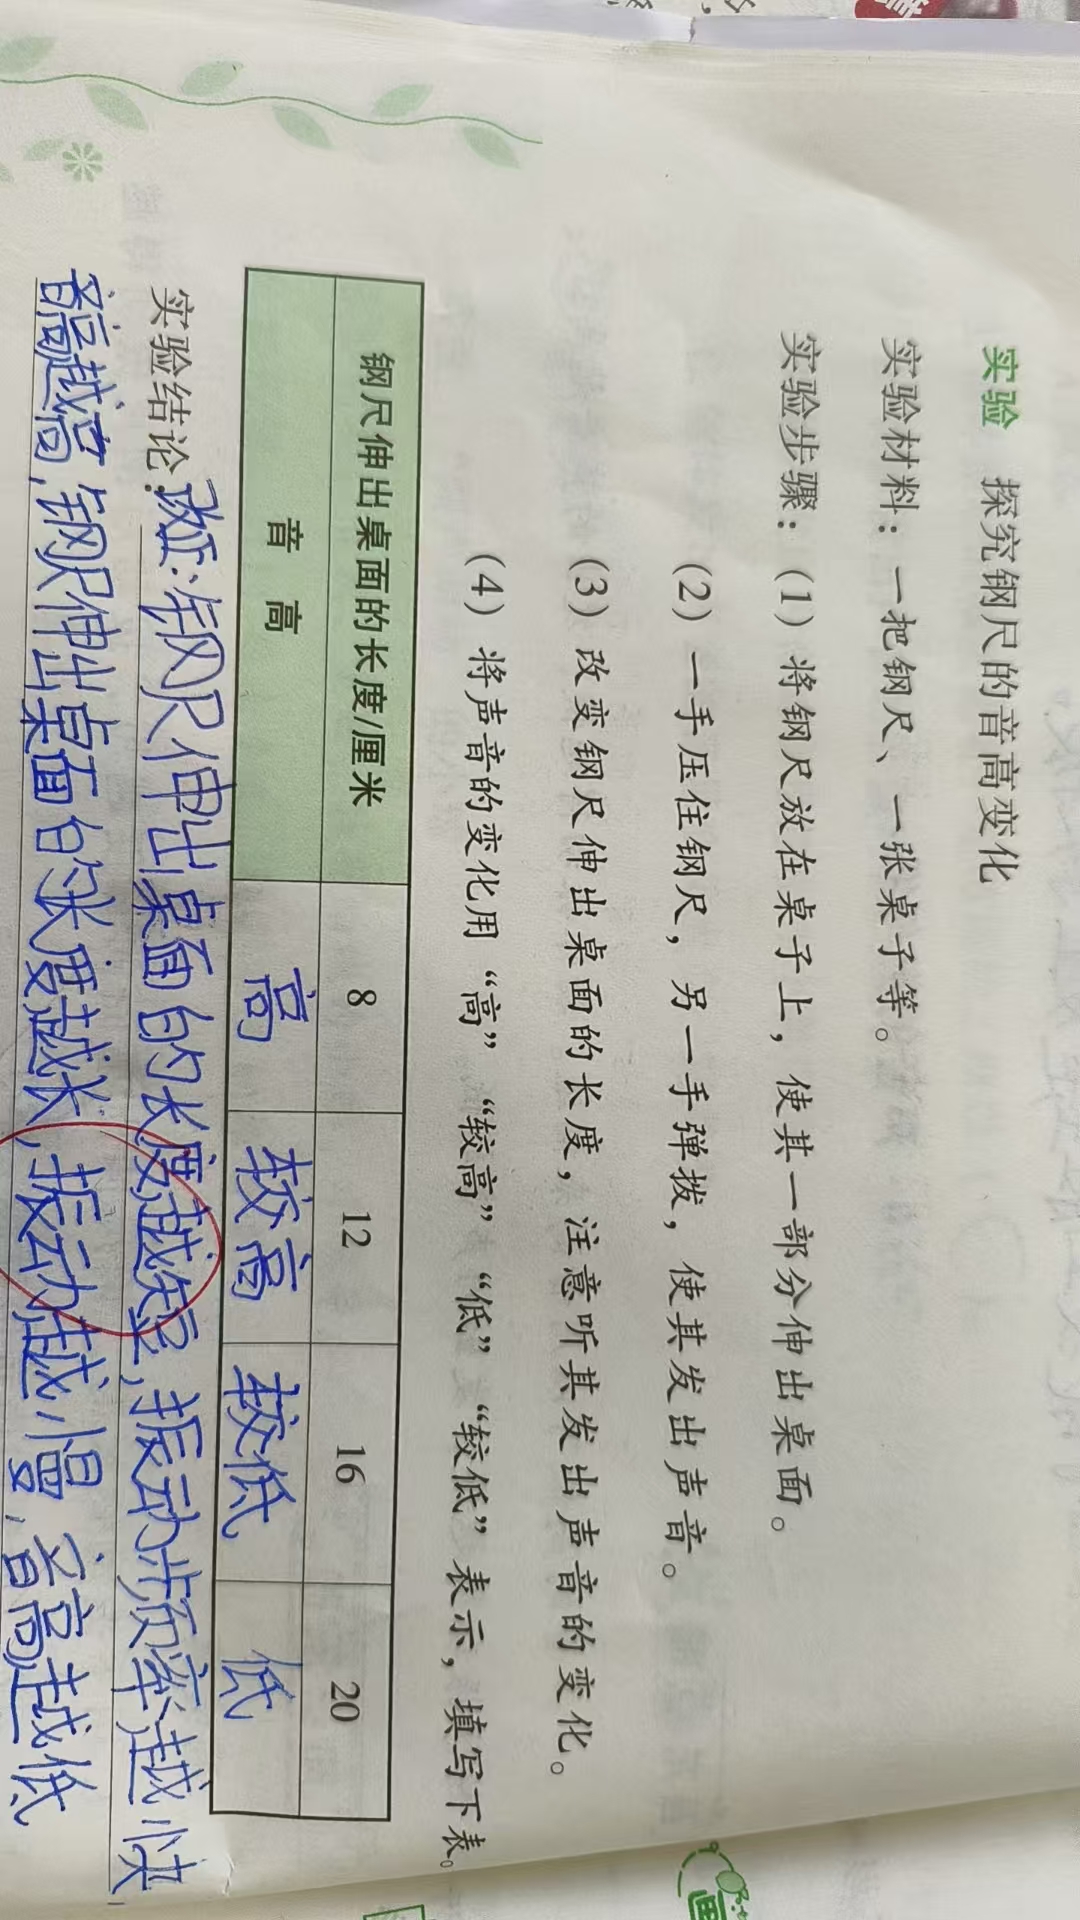 实验 探究钢尺的音高变化
实验材料：一把钢尺、一张桌子等。
实验步骤：（1）将钢尺放在桌子上，使其一部分伸出桌面。
（2）一手压住钢尺，另一手弹拨，使其发出声音。
（3）改变钢尺伸出桌面的长度，注意听其发出声音的变化。
（4）将声音的变化用“高”“较高”“低”“较低”表示，填写下表。
钢尺伸出桌面的长度/厘米 8 12 16 20
音高 高 较高 较低 低
实验结论：改正：钢尺伸出桌面的长度越短，振动频率越快，
音高越高，钢尺伸出桌面的长度越长，振动越慢，音高越低